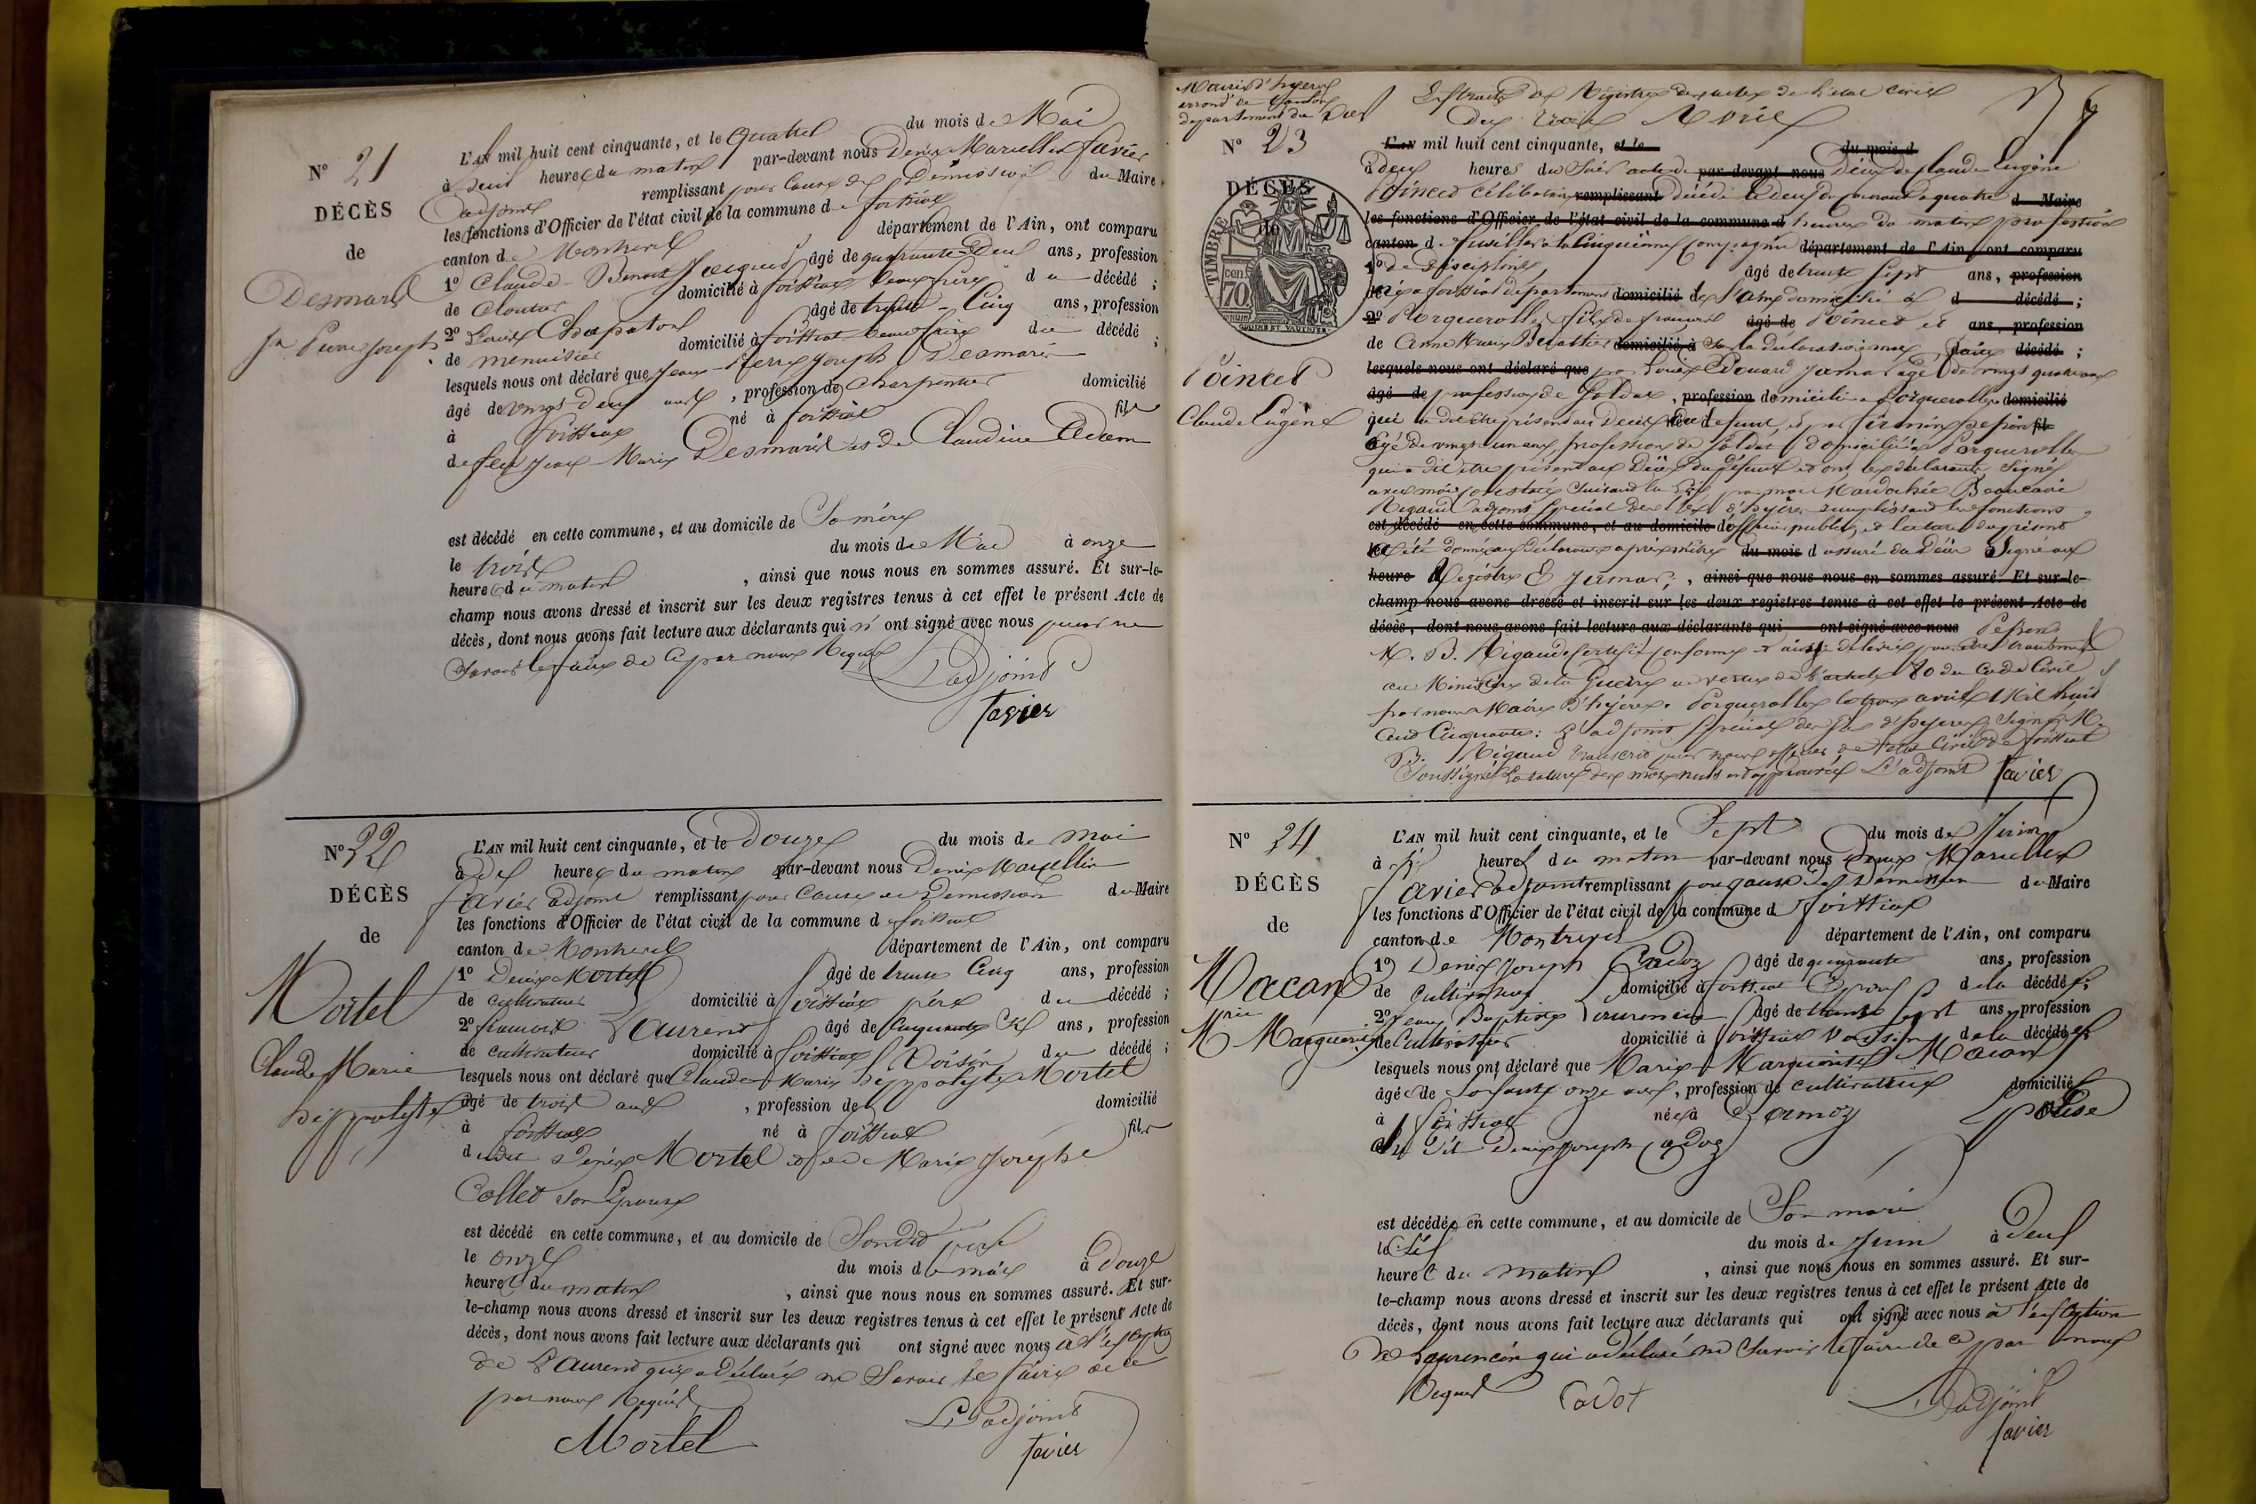 N° 21
DÉCÈS
de
Desmaris
Jn Pierre Joseph
L'AN mil huit cent cinquante, et le quatre du mois de Mai
à heures du matin par-devant nous Denis Marcellin favier
adjoint remplissant pour cause de Démission du Maire
les fonctions d'Officier de l'état civil de la commune de foissiat
canton de Montrevel département de l'Ain, ont comparu
1° Claude-Benoit Jacquis âgé de quarante-Deux ans, profession
de Cloutier domicilié à foissiat beau-frère du décédé ;
2° Louis Chapaton âgé de trente-Cinq ans, profession
de menuisier domicilié à foissiat beau-frère du décédé ;
lesquels nous ont déclaré que Jean-Pierre Joseph Desmaris
âgé de vingt Deux ans, profession de Charpentier domicilié
à foissiat né à foissiat fils
de feu Jean-Marie Desmaris et de Claudine Adam
est décédé en cette commune, et au domicile de Sa mère
le trois du mois de Mai à onze
heures du matin, ainsi que nous nous en sommes assuré. Et sur-le-
champ nous avons dressé et inscrit sur les deux registres tenus à cet effet le présent Acte de
décès, dont nous avons fait lecture aux déclarants qui n'ont signé avec nous pour ne
Savoir le faire de ce par nous Requis
L'adjoint
favier
N° 22
DÉCÈS
de
Mortel
Claude Marie
hyppolyte
L'AN mil huit cent cinquante, et le Douze du mois de mai
à heures du matin par-devant nous Denis Marcellin
favier adjoint remplissant pour Cause de Démission du Maire
les fonctions d'Officier de l'état civil de la commune de foissiat
canton de Montrevel département de l'Ain, ont comparu
1° Denis Mortel âgé de trente Cinq ans, profession
de cultivateur domicilié à foissiat père du décédé ;
2° francois Laurent âgé de Cinquante ans, profession
de cultivateur domicilié à foissiat Voisin du décédé ;
lesquels nous ont déclaré que Claude Marie hyppolyte Mortel
âgé de trois ans, profession de domicilié
à foissiat né à foissiat fils
dudit Denis Mortel et de Marie Josephe
Collet son Epouse
est décédé en cette commune, et au domicile de Sondit père
le onze du mois de mai à Douze
heures du matin, ainsi que nous nous en sommes assuré. Et sur-
le-champ nous avons dressé et inscrit sur les deux registres tenus à cet effet le présent Acte de
décès, dont nous avons fait lecture aux déclarants qui ont signé avec nous à l'exception
de Laurent qui a Déclaré ne Savoir le faire de ce
par nous Requis
Mortel
L'adjoint
favier
Mairie d'hyeres
arrond't de toulon
departement du Var
Extrait des Régistres des actes de l'état civil
N° 23
DÉCÈS
de
TIMBRE
cen 70
Poincet
Claude Eugène
L'AN mil huit cent cinquante, et le du mois d
à deux heures du Soir acte de par-devant nous Décès de Claude Eugène
Poincet Célibataire remplissant Décédé le deux du courant à quatre d Maire
les fonctions d'Officier de l'état civil de la commune d heures du matin profession
canton de fusillier à la Cinquième Compagnie département de l'Ain, ont comparu
1° de Discipline, âgé de trente Sept ans, profession
de né à foissiat département domicilié de l'ain domicilié à d décédé ;
2° Porquerolles fils de françois âgé de Poincet et ans, profession
de Anne Marie domicilié à Sur la déclaration à moi faite décédé ;
lesquels nous ont déclaré que par Louis Edouard Jamar agé de vingt quatre ans
âgé de profession de Soldat, profession domicilié à Porquerolles domicilié
Agé de vingt un ans, profession de Soldat domicilié à Porquerolles
qui a dit être présent au Décès du Défunt et ont les déclarants Signés
avec moi constaté Suivant la Loi par moi Mardochée
Rigaud adjoint Spécial des iles d'hyères remplissant les fonctions
est décédé en cette commune, et au domicile d'officier public, et lecture du présent
le du mois d assuré du Décès Signé aux
heure Registres E Jamar, ainsi que nous nous en sommes assuré. Et sur-le-
champ nous avons dressé et inscrit sur les deux registres tenus à cet effet le présent Acte de
décès, dont nous avons fait lecture aux déclarants qui ont signé avec nous
M. B. Rigaud certifié conforme
au Ministre de la Guerre en vertu de l'article 80 du Code Civil
par nous Maire d'hyères. Porquerolles le trois avril Mil huit
Cent Cinquante : L'adjoint Spécial des iles d'hyeres Signé M.
B. Rigaud transcrit par nous officier de l'état Civil de foissiat
Soussigné La rature des mots nuls est approuvée L'adjoint favier
N° 24
DÉCÈS
de
Macan
Mrie Marguerite
L'AN mil huit cent cinquante, et le Sept du mois de Juin
à heures du matin par-devant nous Denis Marcellin
favier adjoint remplissant pour cause de Démission du Maire
les fonctions d'Officier de l'état civil de la commune d foissiat
canton de Montrevel département de l'Ain, ont comparu
1° Denis Joseph Cadoz âgé de ans, profession
de Cultivateur domicilié à foissiat Epoux de la décédée ;
2° Jean Baptiste Laurencin âgé de trente sept ans, profession
de Cultivateur domicilié à foissiat Voisin de la décédée
lesquels nous ont déclaré que Marie Marguerite Macan
âgée de Soixante onze ans, profession de cultivatrice domiciliée
à foissiat née à Cormoz Epouse
du Dit Denis Joseph Cadoz
est décédée en cette commune, et au domicile de Son mari
le Six du mois de Juin à Deux
heures du matin, ainsi que nous nous en sommes assuré. Et sur-
le-champ nous avons dressé et inscrit sur les deux registres tenus à cet effet le présent Acte de
décès, dont nous avons fait lecture aux déclarants qui ont signé avec nous à l'exception
de Laurencin qui a déclaré ne Savoir le faire de ce par nous
Requis
Cadot
L'adjoint
favier